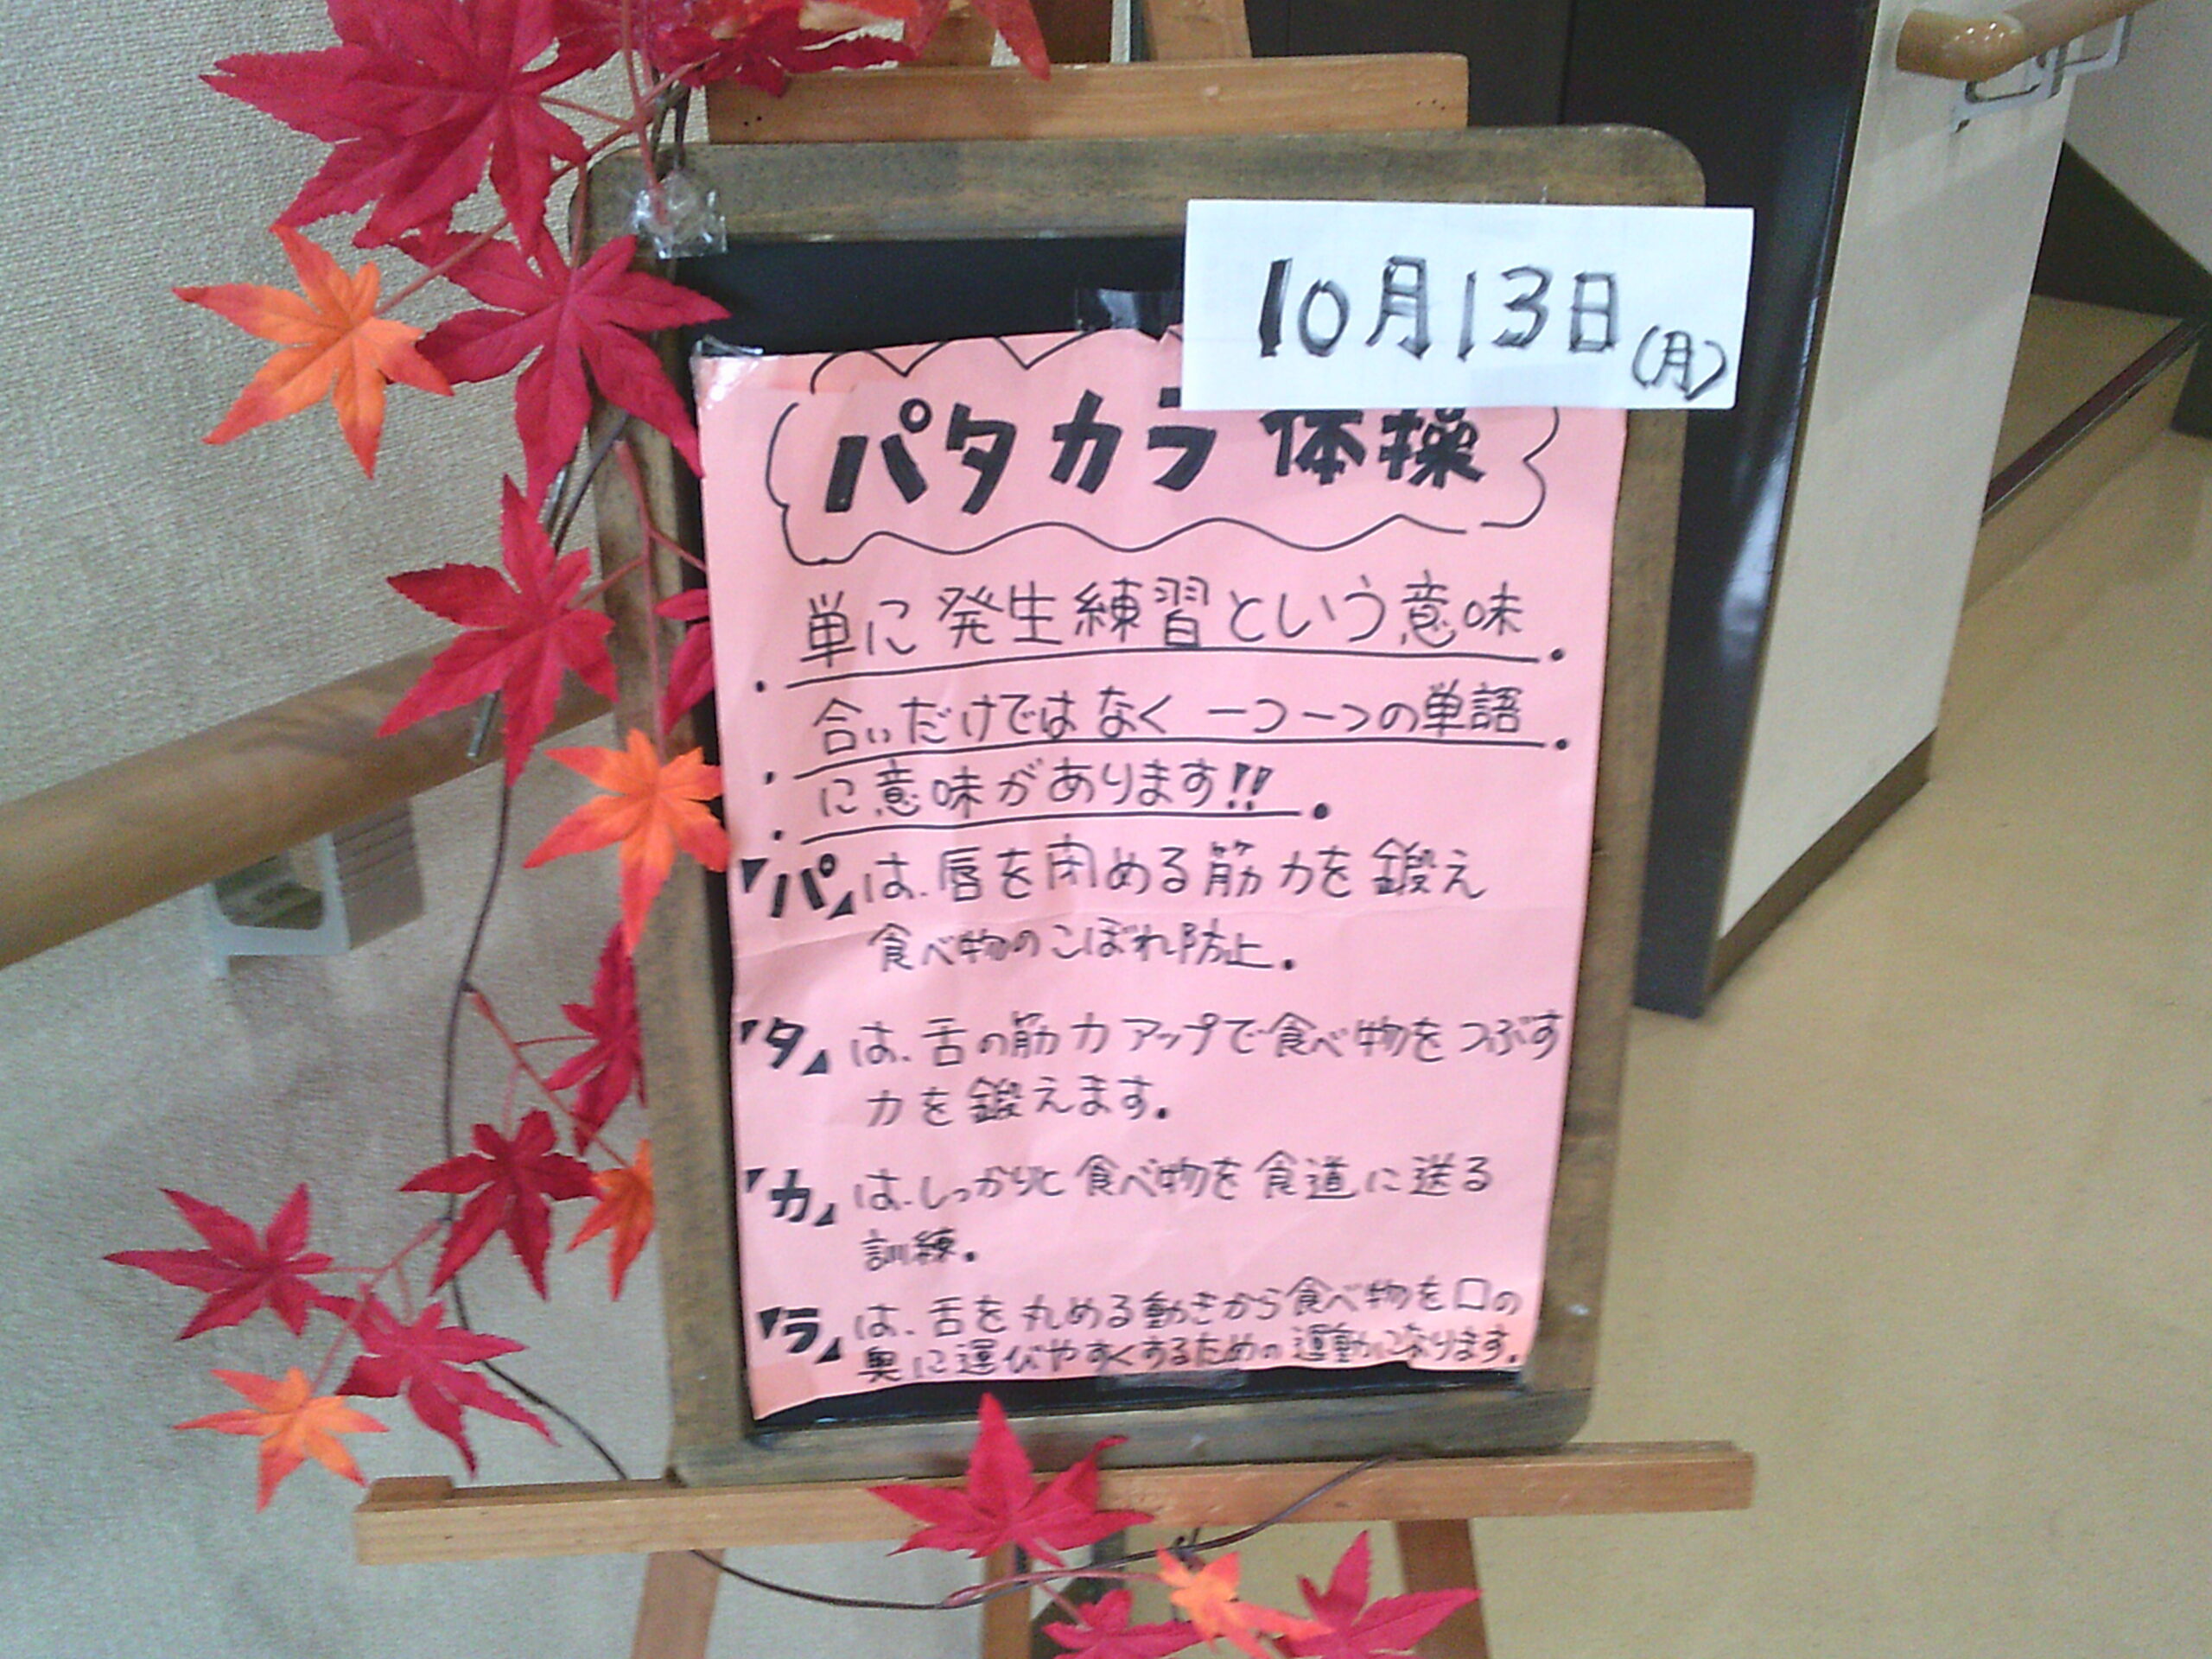 10月13日(月)
パタカラ体操
単に発生練習という意味
合いだけではなく一つ一つの単語
に意味があります!!
『パ』は、唇を閉める筋力を鍛え
食べ物のこぼれ防止。
『タ』は、舌の筋力アップで食べ物をつぶす
力を鍛えます。
『カ』は、しっかりと食べ物を食道に送る
訓練。
『ラ』は、舌を丸める動きから食べ物を口の
奥に運びやすくするための運動になります。